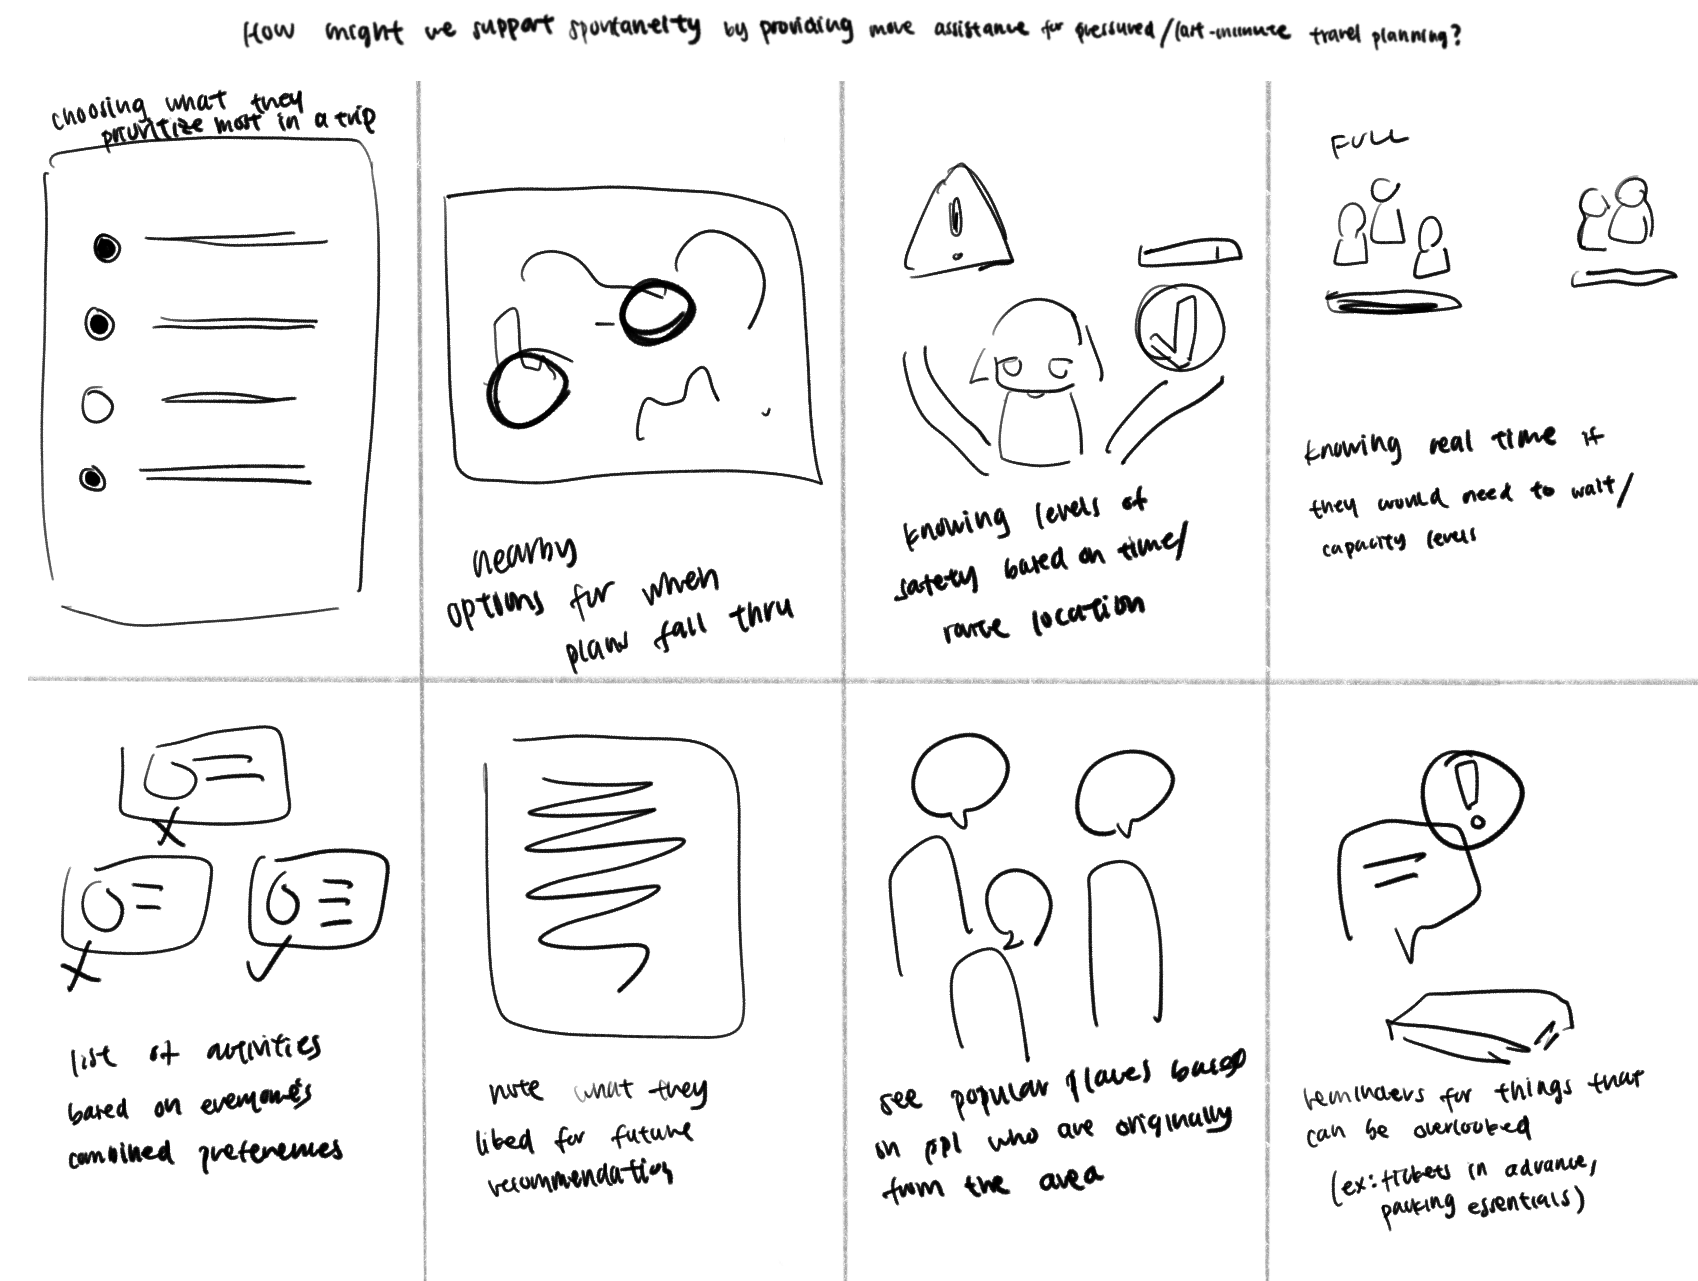 How might we support spontaneity by providing more assistance for pressured/last-minute travel planning?
choosing what they
prioritize most in a trip
nearby
options for when
plans fall thru
knowing levels of
safety based on time/
route location
FULL
knowing real time if
they would need to wait/
capacity levels
list of activities
based on everyone's
combined preferences
note what they
liked for future
recommendation
see popular places based
on ppl who are originally
from the area
reminders for things that
can be overlooked
(ex: tickets in advance,
packing essentials)